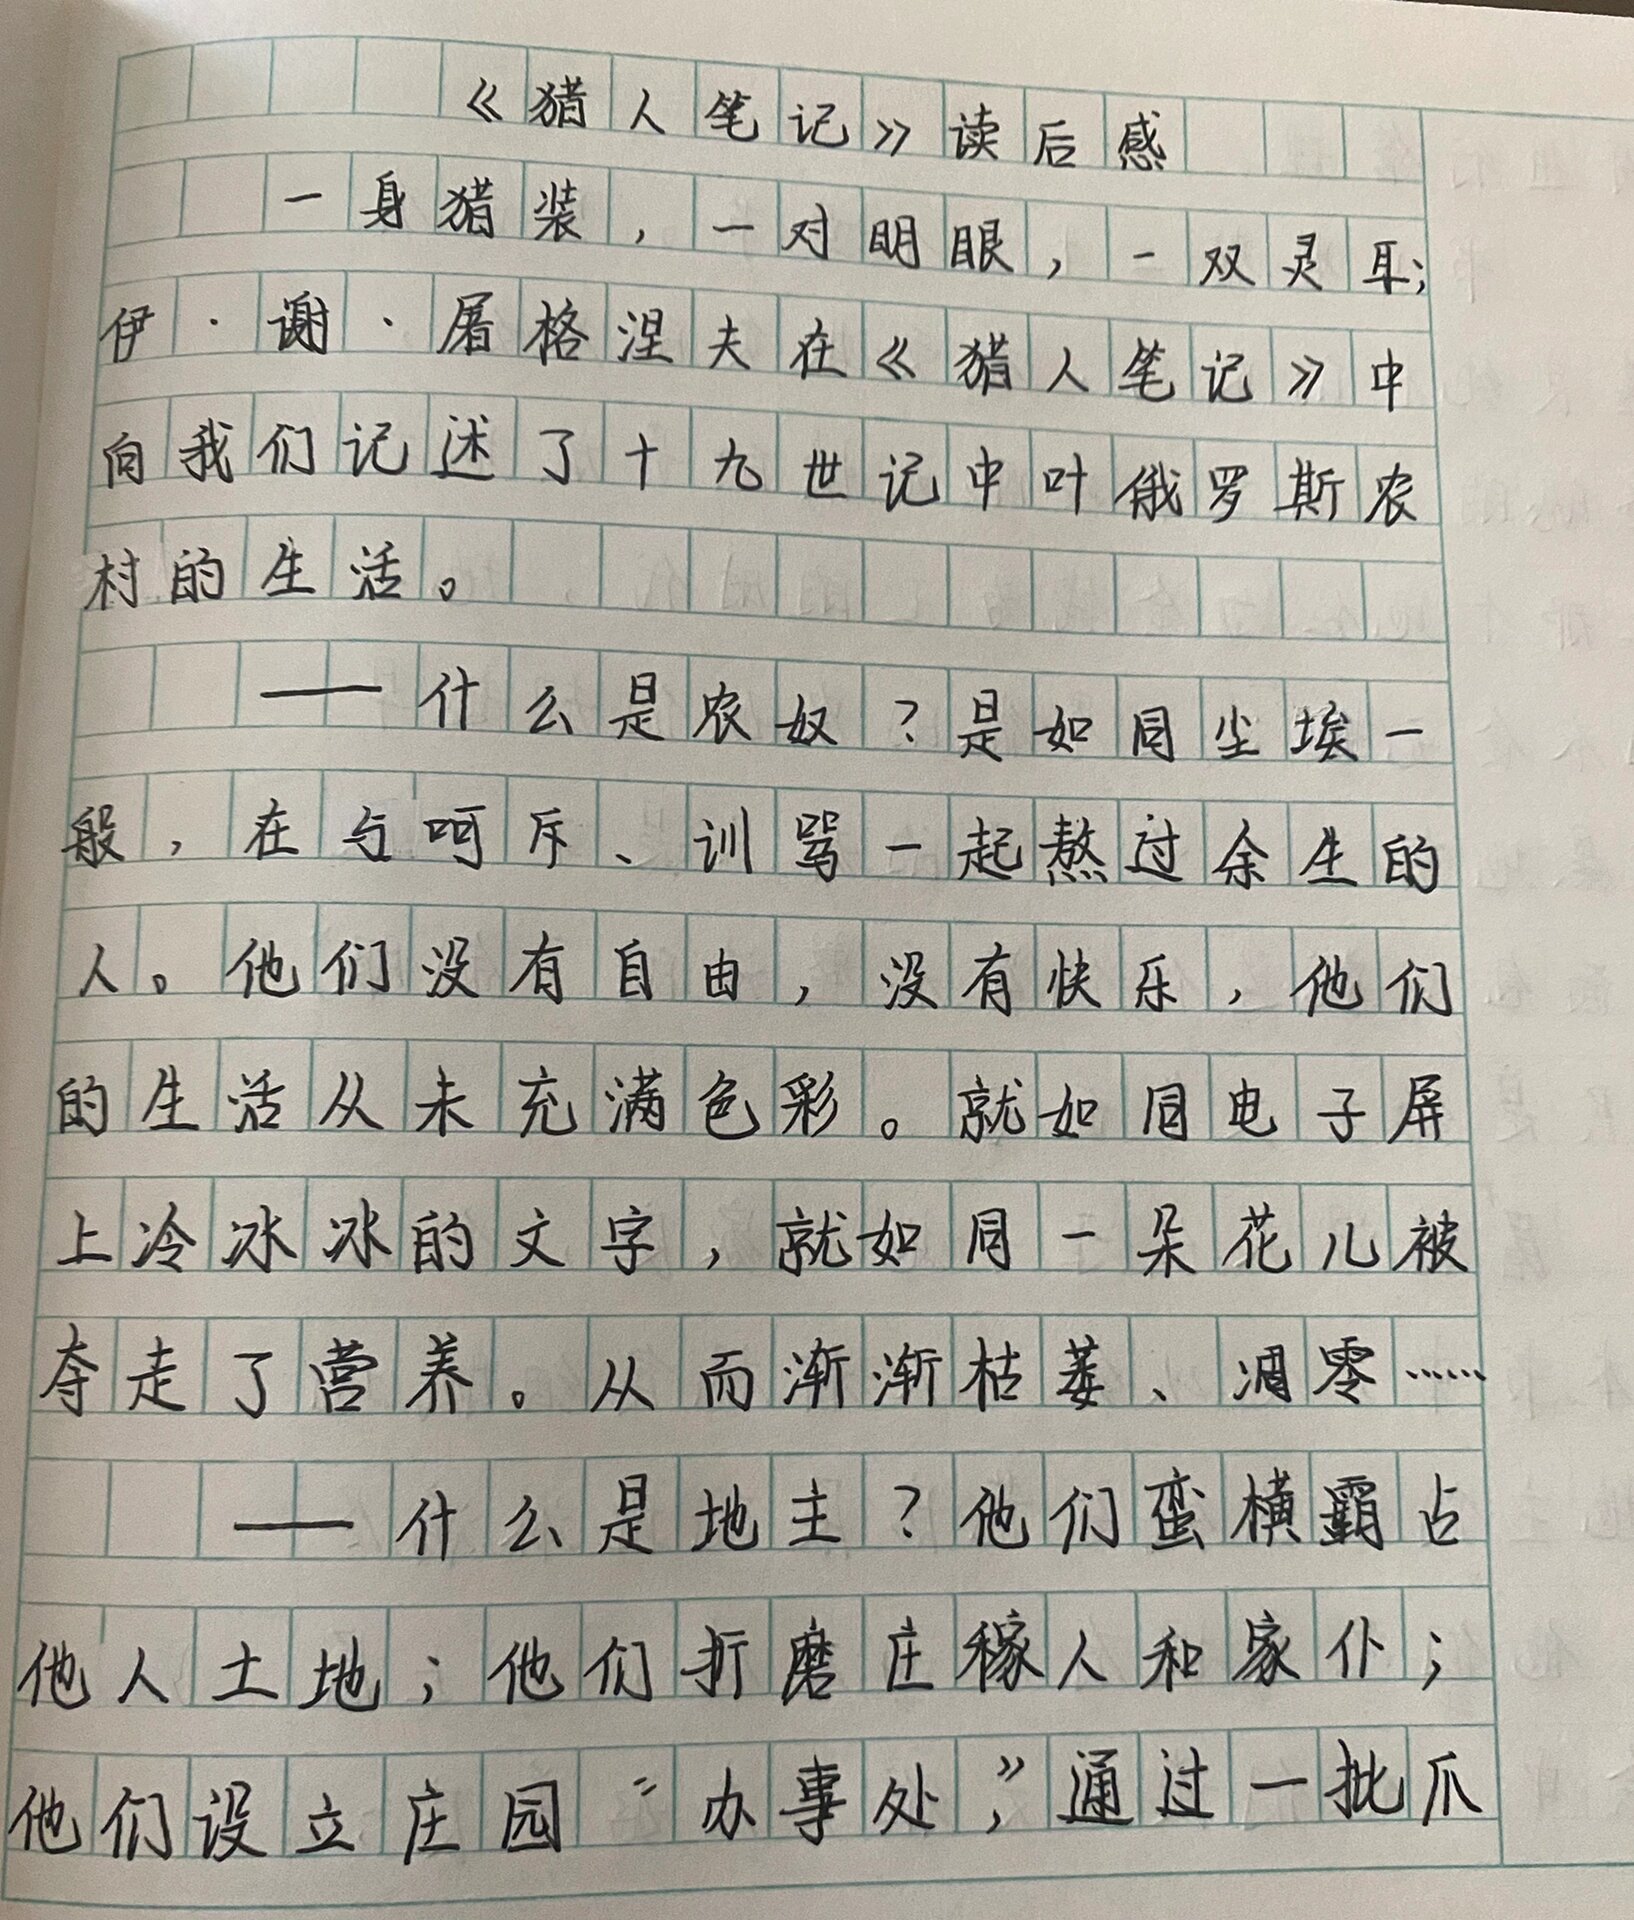 《猎人笔记》读后感
一身猎装，一对明眼，一双灵耳；
伊·谢·屠格涅夫在《猎人笔记》中
向我们记述了十九世记中叶俄罗斯农
村的生活。
——什么是农奴？是如同尘埃一
般，在与呵斥、训骂一起熬过余生的
人。他们没有自由，没有快乐，他们
的生活从未充满色彩。就如同电子屏
上冷冰冰的文字，就如同一朵花儿被
夺走了营养。从而渐渐枯萎、凋零……
——什么是地主？他们蛮横霸占
他人土地；他们折磨庄稼人和家仆；
他们设立庄园“办事处”，通过一批爪